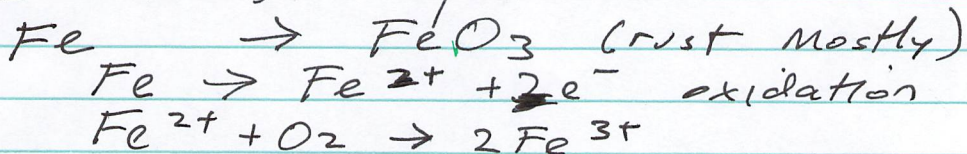 Fe → FeO3 (rust mostly)
Fe → Fe 2+ + 2e- oxidation
Fe 2+ + O2 → 2 Fe 3+